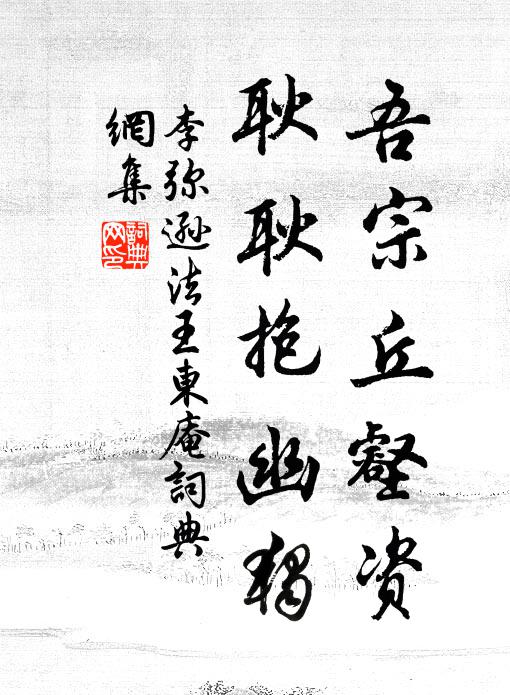 吾宗丘壑资
耿耿抱幽独
李弥逊法王東庵詞典
網集
詞典網印